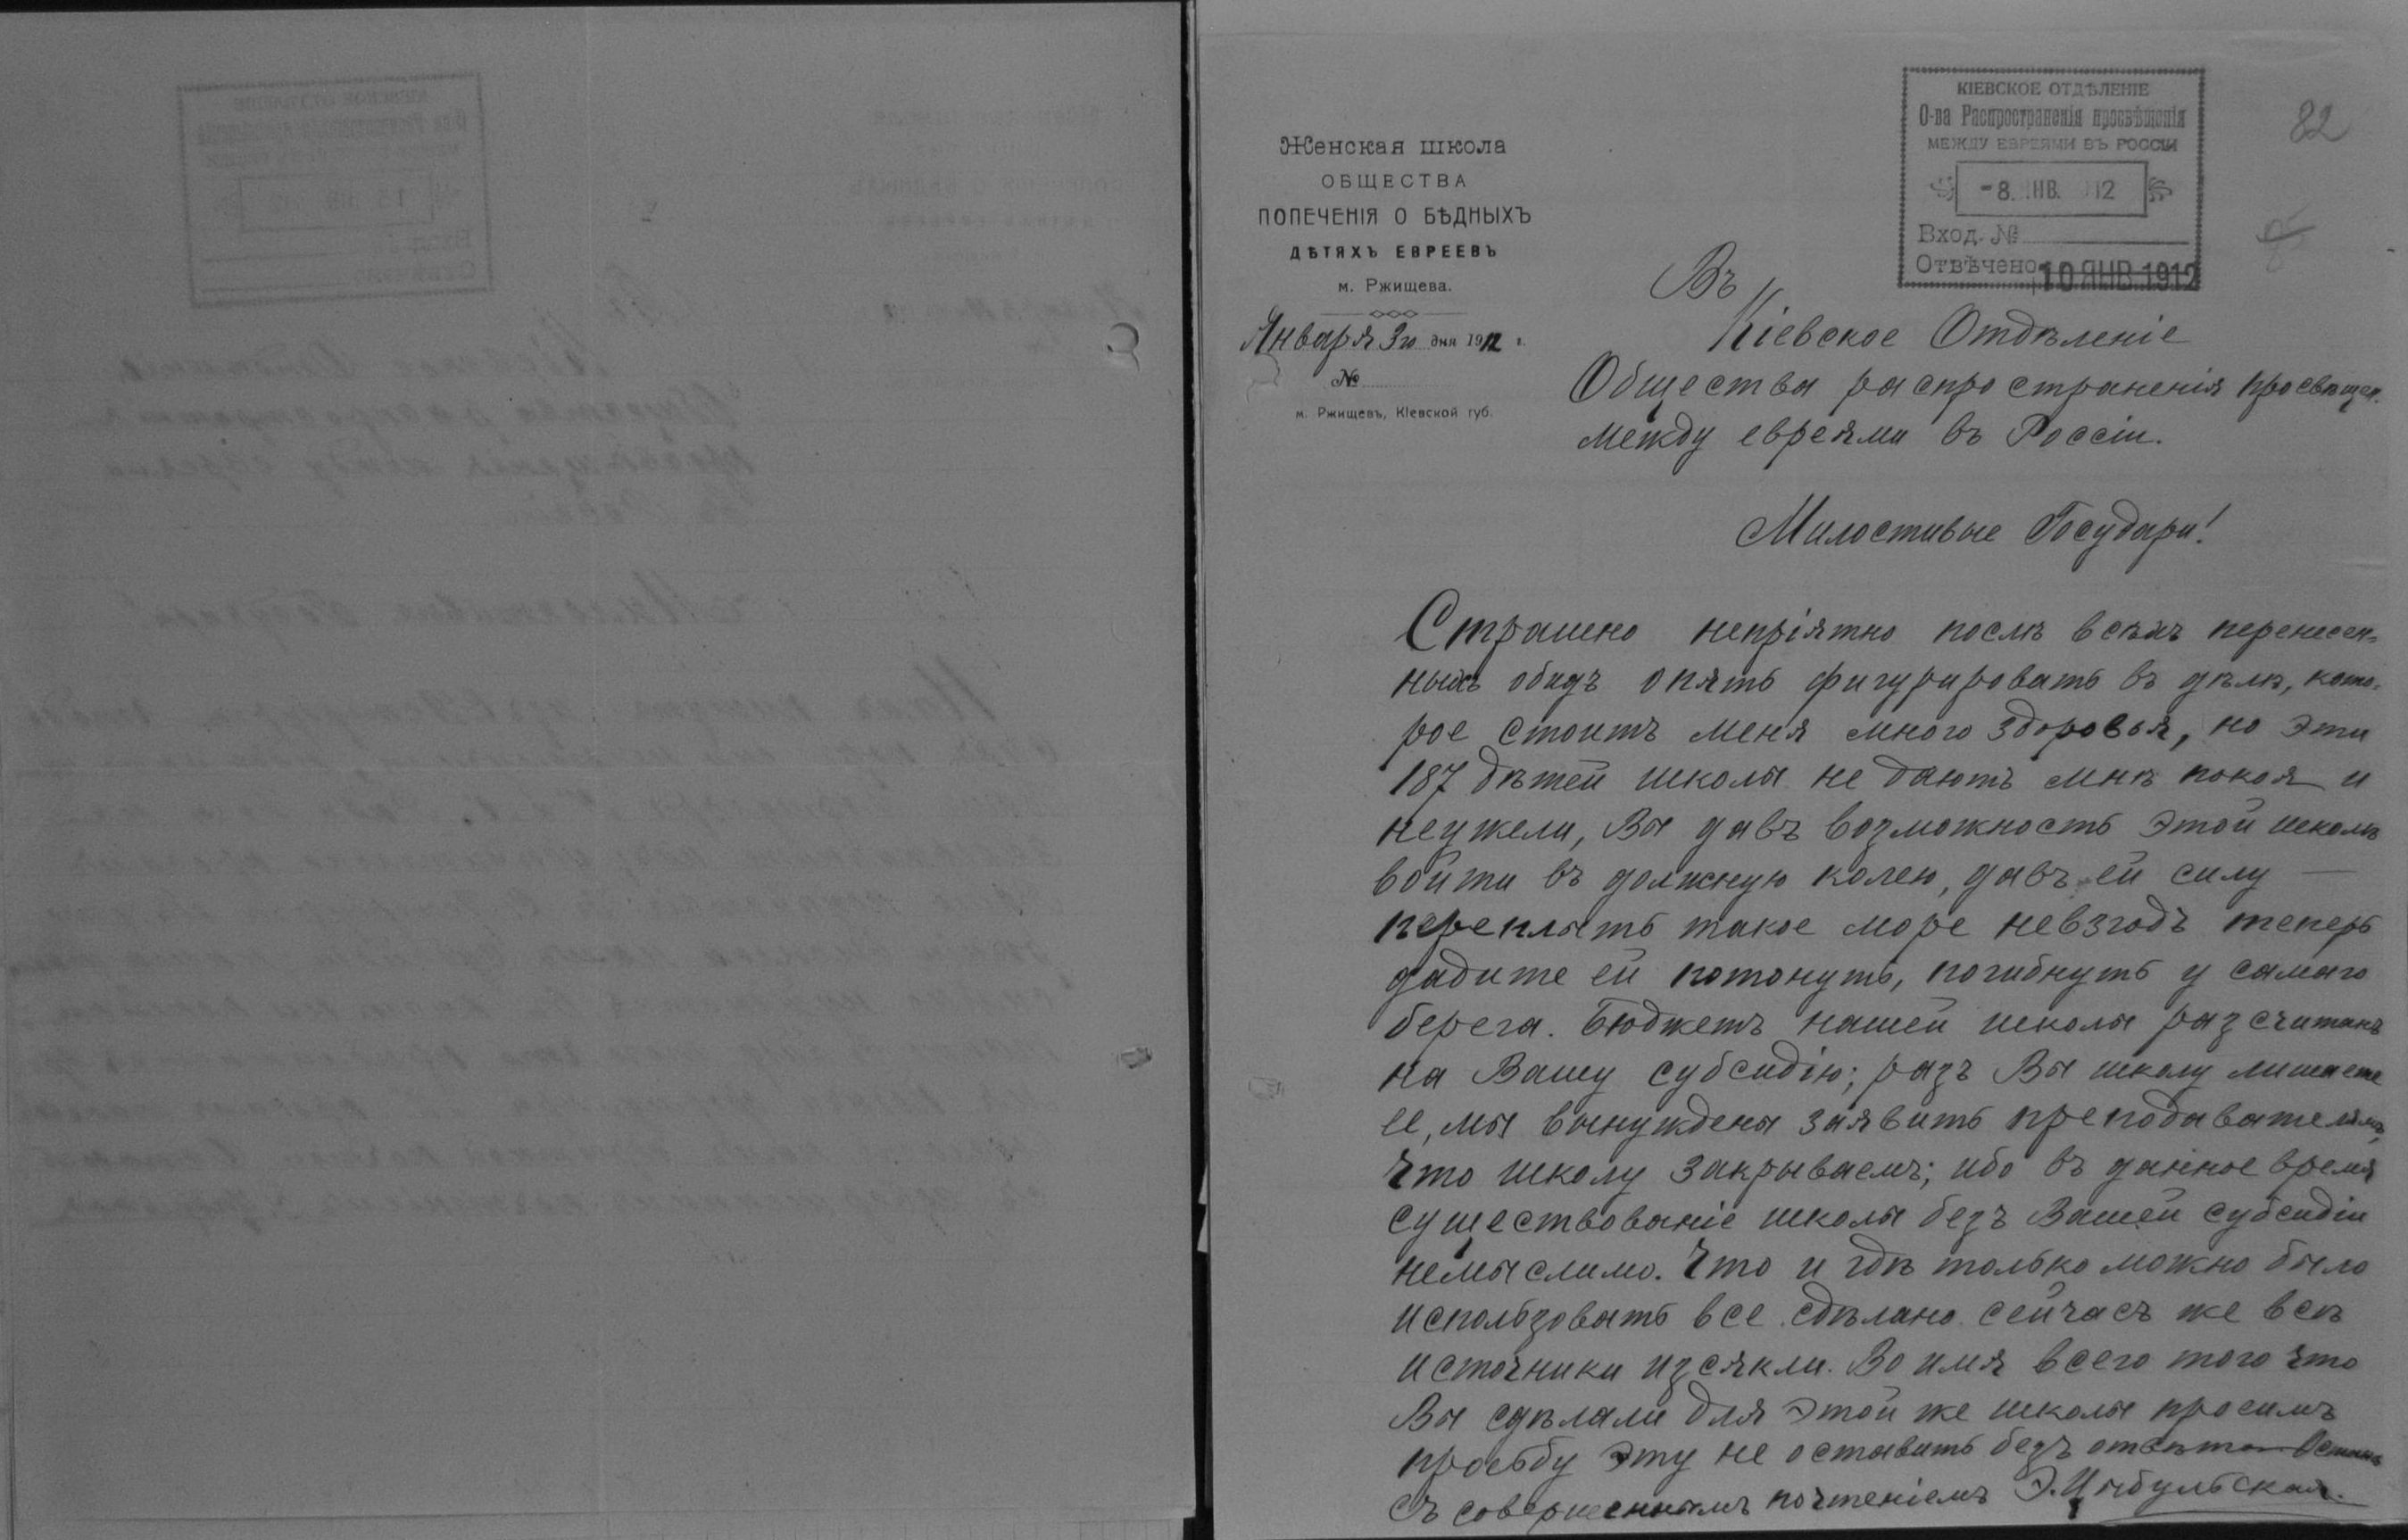 Женская школа
ОБЩЕСТВА
ПОПЕЧЕНІЯ О БѢДНЫХЪ
ДѢТЯХЪ ЕВРЕЕВЪ
м. Ржищева.
Января 3го дня 1912 г.
№
м. Ржищевъ, Кіевской губ.
КІЕВСКОЕ ОТДѢЛЕНІЕ
О-ва Распространенія просвѣщенія
МЕЖДУ ЕВРЕЯМИ ВЪ РОССІИ
-8. ЯНВ. 912
Вход. №
Отвѣчено 10 ЯНВ 1912
82
Въ
Кіевское Отдѣленіе
Общества распространенія просвѣщен.
между евреями въ Россіи.
Милостивые Государи!
Страшно непріятно послѣ всѣхъ перенесен-
ныхъ обидъ опять фигурировать въ дѣлѣ, кото-
рое стоитъ меня много здоровья, но эти
187 дѣтей школы не даютъ мнѣ покоя и
неужели, Вы давъ возможность этой школѣ
войти въ должную колею, давъ ей силу —
переплыть такое море невзгодъ теперь
дадите ей потонуть, погибнуть у самаго
берега. Бюджетъ нашей школы разсчитанъ
на Вашу субсидію; разъ Вы школу лишаете
ее, мы вынуждены заявить преподавателямъ,
что школу закрываемъ; ибо въ данное время
существованіе школы безъ Вашей субсидіи
немыслимо. Что и гдѣ только можно было
использовать все сдѣлано. сейчасъ же всѣ
источники изсякли. Во имя всего того что
Вы сдѣлали для этой же школы просимъ
просьбу эту не оставить безъ отвѣта
Съ совершеннымъ почтеніемъ Э. Цыбульская.